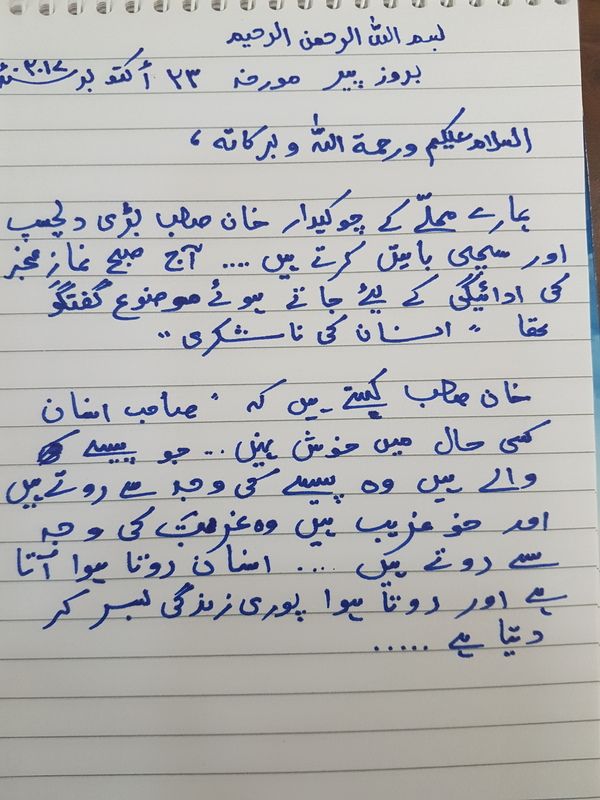 بسم اللہ الرحمن الرحیم
بروز پیر مورخہ ۲۳ اکتوبر سنہ ۲۰۱۷
السلام علیکم ورحمۃ اللہ وبرکاتہ ،
ہمارے محلّے کے چوکیدار خان صاحب بڑی دلچسپ
اور سچی باتیں کرتے ہیں .... آج صبح نمازِ فجر
کی ادائیگی کے لیئے جاتے ہوئے موضوع گفتگو
تھا " انسان کی ناشکری "
خان صاحب کہتے ہیں کہ " صاحب انسان
کسی حال میں خوش نہیں ... جو پیسے
والے ہیں وہ پیسے کی وجہ سے روتے ہیں
اور جو غریب ہیں وہ غربت کی وجہ
سے روتے ہیں .... انسان روتا ہوا آتا
ہے اور روتا ہوا پوری زندگی بسر کر
دیتا ہے .....